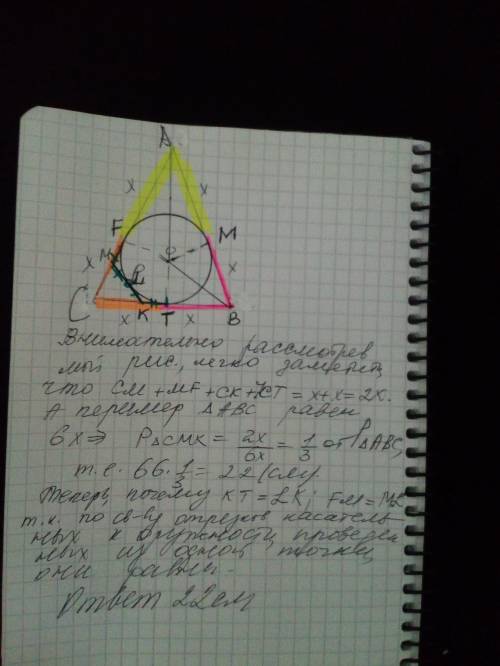 A
x x
F M
O
M
x x
L
C K T B
x x
Внимательно рассмотрев
мой рис., легко заметить
что CM + MF + CK + KT = x + x = 2x.
А пеример △ABC равен
6x ⇒ P△CMK = 2x/6x = 1/3 от P△ABC,
т.е. 66 · 1/3 = 22 (см).
Теперь, почему KT = LK; FM = ML
т.к. по св-ву отрезков касатель-
ных к окружности, проведен-
ных из одной точки,
они равны.
Ответ 22 см